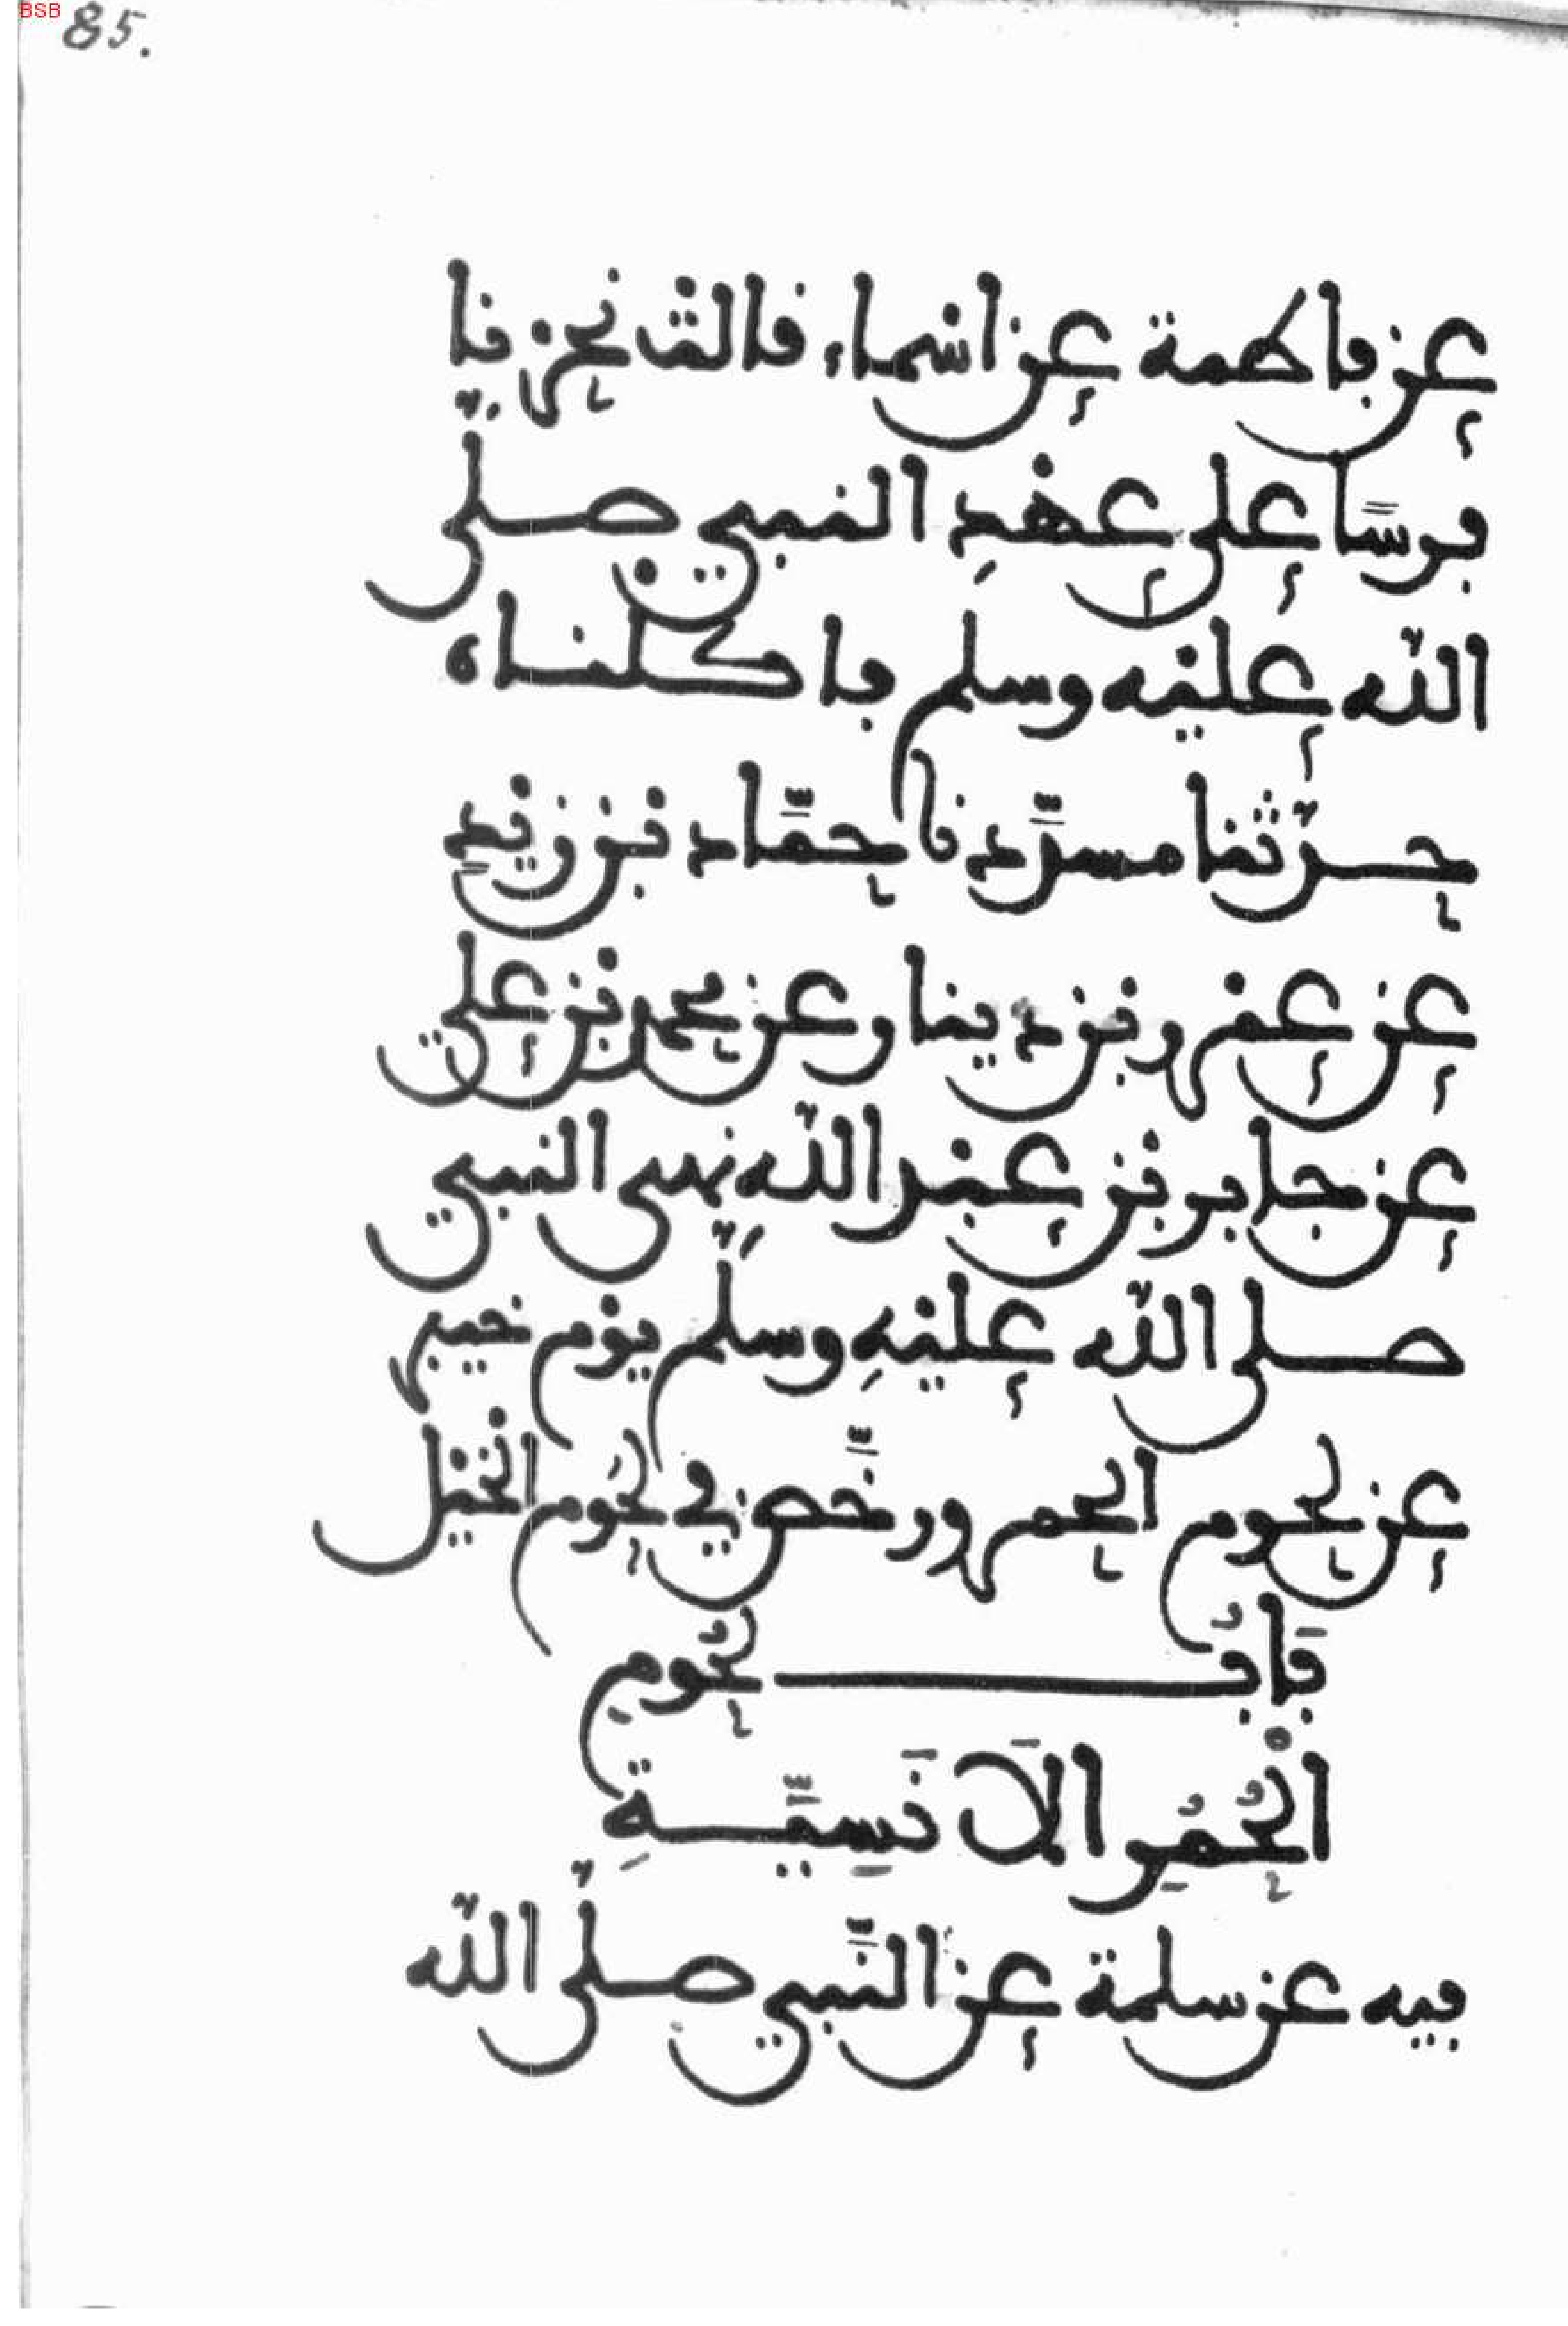 BSB
85.
عن فاطمة عن اسْماء قالتْ نحرنا
فرسًا على عهْدِ النبي صلى
الله عليْه وسلم فاكلناه
حدّثنا مسدّد نا حمّاد بْن زيْدٍ
عن عمْرو بْن دينار عن محمد بْن علي
عن جابر بْن عبْد اللهِ نهى النبي
صلى الله عليْهِ وسلم يوْم خيبر
عن لحوم الحمر ورخّص في لحُوم الخيْل
بَابُ لحُومِ
الْحُمُرِ الاَنَسِيَّةِ
فيه عن سلمة عن النّبي صلى الله